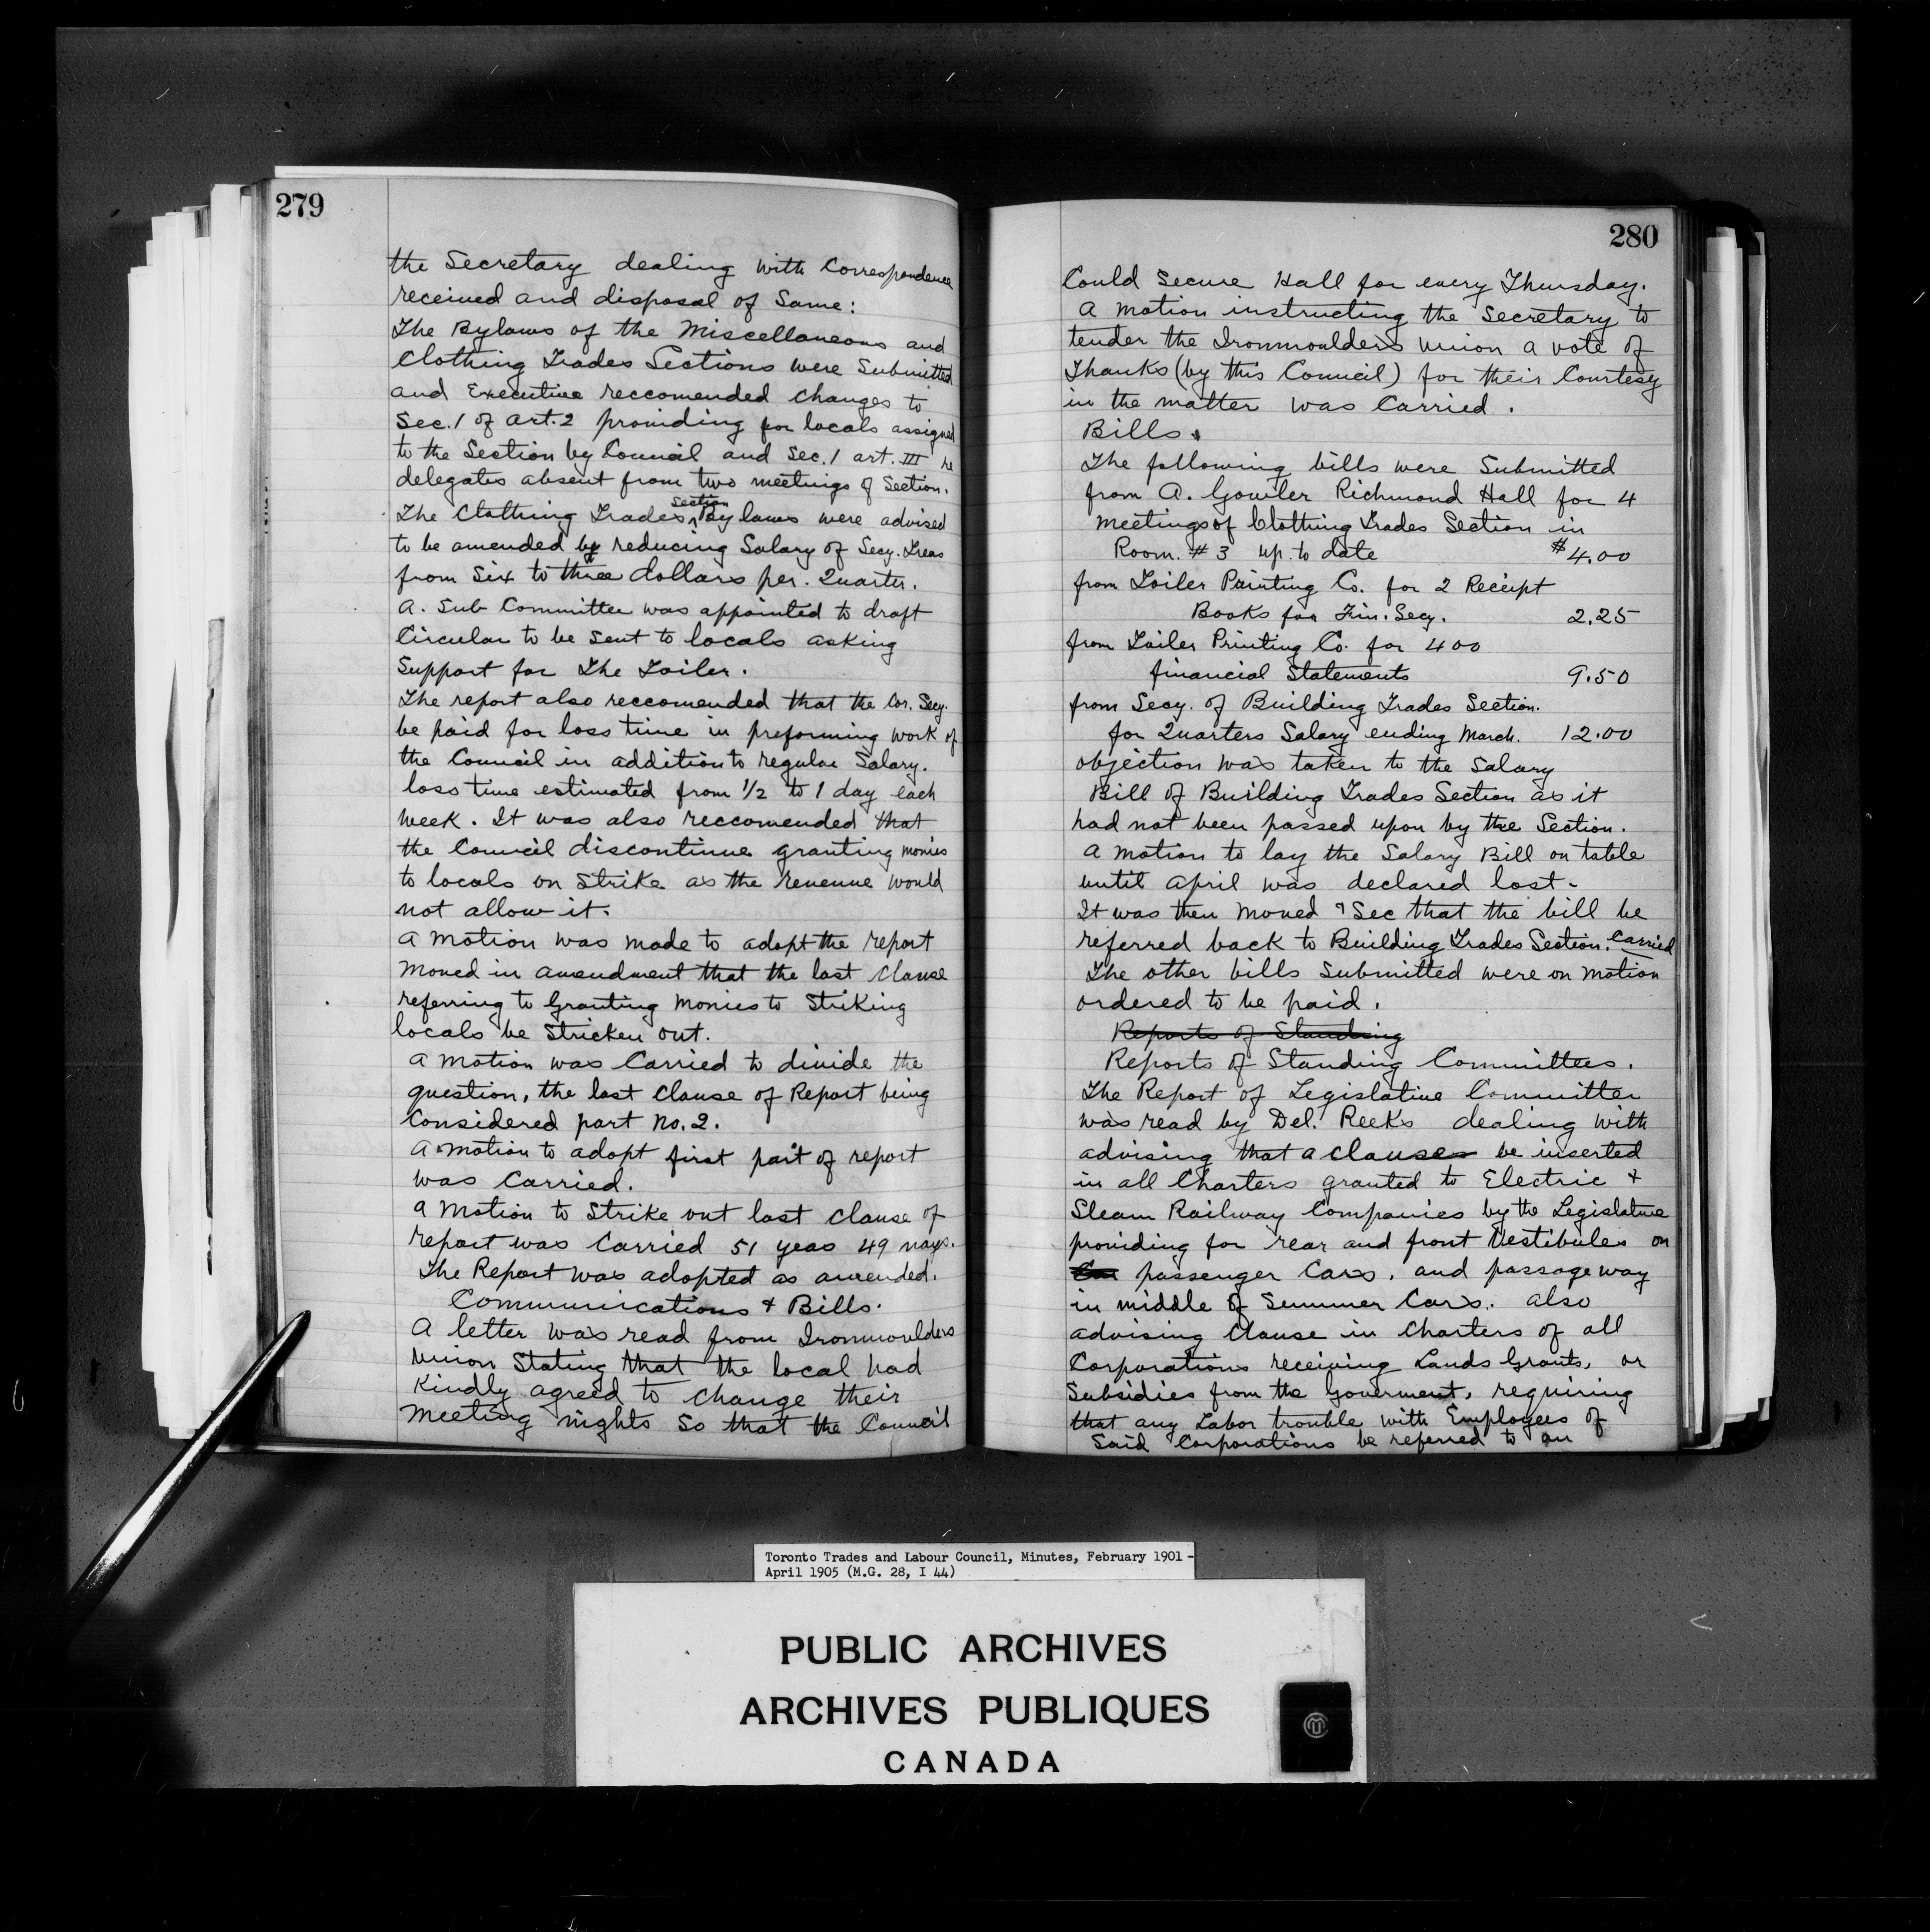 279
the Secretary dealing with Correspondence
received and disposal of Same:
The Bylaws of the Miscellaneous and
Clothing Trades Sections were Submitted
and Executive reccomended changes to
Sec. 1 of art. 2 providing for locals assigned
to the Section by Council and Sec. 1 art. III re
delegates absent from two meetings of Section.
The Clothing Trades Section Bylaws were advised
to be amended by reducing Salary of Secy. Treas
from Six to three dollars per. Quarter.
A. Sub Committee was appointed to draft
Circular to be Sent to locals asking
Support for The Toiler.
The report also reccomended that the Cor. Secy.
be paid for loss time in preforming work of
the Council in addition to regular Salary.
loss time estimated from 1/2 to 1 day each
week. It was also reccomended that
the Council discontinue granting monies
to locals on Strike as the revenue would
not allow it.
A motion was made to adopt the report
Moved in amendment that the last Clause
referring to Granting Monies to Striking
locals be Stricken out.
A Motion was Carried to divide the
question, the last Clause of Report being
Considered part No. 2.
A motion to adopt first part of report
was Carried.
A Motion to Strike out last Clause of
report was Carried 51 yeas 49 nays.
The Report was adopted as amended.
Communications & Bills.
A letter was read from Ironmoulders
Union Stating that the local had
Kindly agreed to change their
Meeting nights So that the Council
280
Could Secure Hall for every Thursday.
A Motion instructing the Secretary to
tender the Ironmoulders Union a vote of
Thanks (by this Council) for their Courtesy
in the matter was Carried.
Bills.
The following bills were Submitted
from A. Gowler Richmond Hall for 4
Meetings of Clothing Trades Section in
Room. # 3 up. to date $4.00
from Toiler Printing Co. for 2 Receipt
Books for Fin. Secy. 2.25
from Toiler Printing Co. for 400
financial Statements 9.50
from Secy. of Building Trades Section.
for Quarters Salary ending March. 12.00
objection was taken to the Salary
Bill of Building Trades Section as it
had not been passed upon by the Section.
A Motion to lay the Salary Bill on table
until April was declared lost.
It was then Moved & Sec that the bill be
referred back to Building Trades Section. Carried
The other bills Submitted were on Motion
ordered to be paid.
Reports of Standing
Reports of Standing Committees.
The Report of Legislative Committee
was read by Del. Reeks dealing with
advising that a clause be inserted
in all Charters granted to Electric &
Steam Railway Companies by the Legislature
providing for rear and front Vestibules on
passenger Cars. and passageway
in middle of Summer Cars. also
advising Clause in Charters of all
Corporations receiving Lands Grants, or
Subsidies from the Goverment, requiring
that any Labor trouble with Employees of
Said Corporations be referred to an
Toronto Trades and Labour Council, Minutes, February 1901 -
April 1905 (M.G. 28, I 44)
PUBLIC ARCHIVES
ARCHIVES PUBLIQUES
CANADA